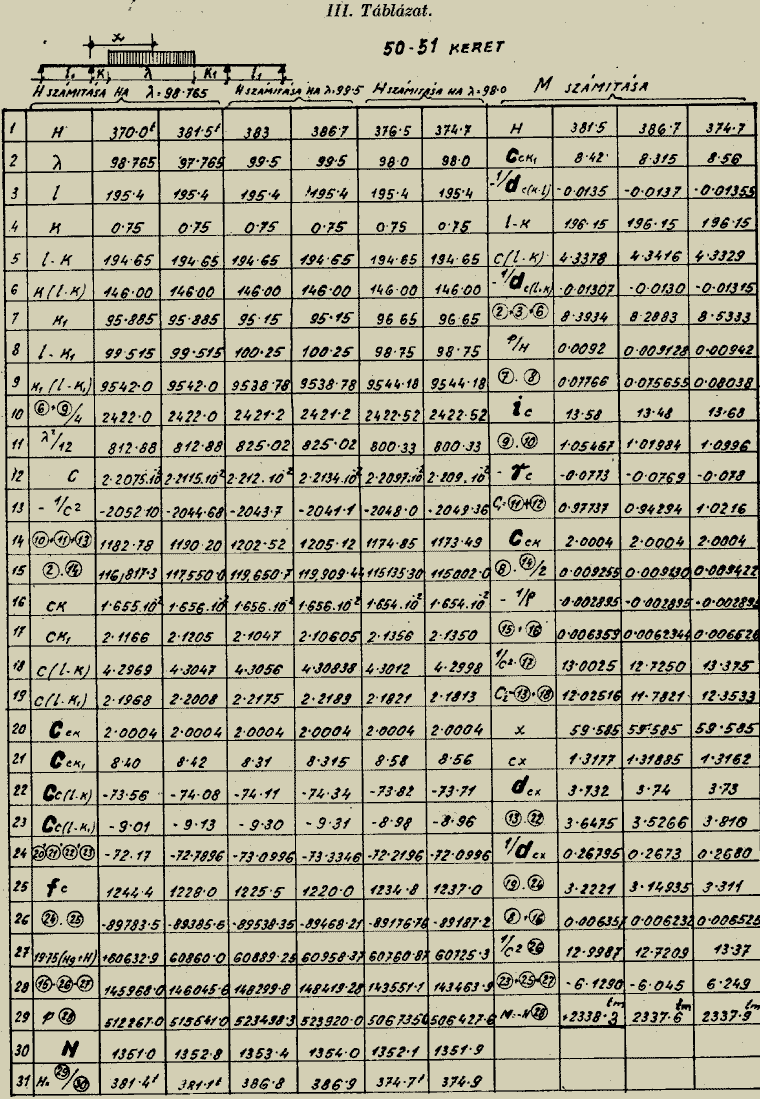 III. Táblázat.
x
50-51 KERET
l₁ K λ K₁ l₁
H SZÁMITÁSA HA λ=98·765 H SZÁMITÁSA HA λ=99·5 H SZÁMITÁSA HA λ=98·0 M SZÁMITÁSA
1 H 370·0ᵗ 381·5ᵗ 383 386·7 376·5 374·7 H 381·5 386·7 374·7
2 λ 98·765 97·765 99·5 99·5 98·0 98·0 C_cK₁ 8·42 8·315 8·56
3 l 195·4 195·4 195·4 195·4 195·4 195·4 -1/d_c(K-l) -0·0135 -0·0137 -0·01355
4 K 0·75 0·75 0·75 0·75 0·75 0·75 l-K 196·15 196·15 196·15
5 l-K 194·65 194·65 194·65 194·65 194·65 194·65 C(l-K) 4·3378 4·3416 4·3329
6 K(l-K) 146·00 146·00 146·00 146·00 146·00 146·00 -1/d_c(l-K) -0·01307 -0·0130 -0·01315
7 K₁ 95·885 95·885 95·15 95·15 96 65 96·65 ②+③+⑥ 8·3934 8·2883 8·5333
8 l-K₁ 99·515 99·515 100·25 100·25 98·75 98·75 P/H 0·0092 0·009128 0·00942
9 K₁(l-K₁) 9542·0 9542·0 9538·78 9538·78 9544·18 9544·18 ⑦.⑧ 0·07766 0·075655 0·08038
10 ⑥+⑨/4 2422·0 2422·0 2421·2 2421·2 2422·52 2422·52 i c 13·58 13·48 13·68
11 λ²/12 812·88 812·88 825·02 825·02 800·33 800·33 ⑨.⑩ 1·05467 1·01984 1·0996
12 C 2·2075.10⁻² 2·2115.10⁻² 2·212.10⁻² 2·2134.10⁻² 2·2097.10⁻² 2·209.10⁻² -γc -0·0773 -0·0769 -0·078
13 -1/c² -2052·10 -2044·68 -2043·7 -2041·1 -2048·0 -2049·36 C₁=⑪+⑫ 0·97737 0·94294 1·0216
14 ⑩+⑪+⑬ 1182·78 1190·20 1202·52 1205·12 1174·85 1173·49 C_cK 2·0004 2·0004 2·0004
15 ②.⑭ 116,817·3 117,550·0 119,650·7 119,909·44 115135·30 115002·0 ⑧.⑭/2 0·009255 0·009130 0·009422
16 CK 1·655.10⁻² 1·656.10⁻² 1·656.10⁻² 1·656.10⁻² 1·654.10⁻² 1·654.10⁻² -1/P -0·002895 -0·002895 -0·002895
17 CK₁ 2·1166 2·1205 2·1047 2·10605 2·1356 2·1350 ⑮+⑯ 0·006359 0·0062344 0·006526
18 C(l-K) 4·2969 4·3047 4·3056 4·30838 4·3012 4·2998 1/c².⑰ 13·0025 12·7250 13·375
19 C(l-K₁) 2·1968 2·2008 2·2175 2·2189 2·1821 2·1813 C₂=⑬+⑱ 12·02516 11·7821 12·3533
20 C_cK 2·0004 2·0004 2·0004 2·0004 2·0004 2·0004 x 59·585 59·585 59·585
21 C_cK₁ 8·40 8·42 8·31 8·315 8·58 8·56 cx 1·3177 1·31885 1·3162
22 C_c(l-K) -73·56 -74·08 -74·11 -74·34 -73·82 -73·71 d_cx 3·732 3·74 3·73
23 C_c(l-K₁) -9·01 -9·13 -9·30 -9·31 -8·98 -8·96 ⑬.㉒ 3·6475 3·5266 3·810
24 ⑳+㉑+㉒+㉓ -72·17 -72·7896 -73·0996 -73·3346 -72·2196 -72·0996 1/d_cx 0·26795 0·2673 0·2680
25 f c 1244·4 1228·0 1225·5 1220·0 1234·8 1237·0 ⑲.㉔ 3·2221 3·14935 3·311
26 ㉔.㉕ -89783·5 -89385·6 -89538·35 -89468·21 -89176·76 -89187·2 ⑧+⑯ 0·006357 0·006232 0·006525
27 1975(Hg+H) +60632·9 60860·0 60889·25 60958·37 60760·87 60725·3 1/c² ㉖ 12·9987 12·7209 13·37
28 ⑮-㉖-㉗ 145968·0 146045·6 148299·8 148419·28 143551·1 143463·9 ㉓+㉕-㉗ -6·1290 -6·045 6·249
29 P ㉘ 512267·0 515641·0 523498·3 523920·0 506735 506427·6 M=-H㉘ +2338·3ᵗᵐ 2337·6ᵗᵐ 2337·9ᵗᵐ
30 N 1351·0 1352·8 1353·4 1354·0 1352·1 1351·9
31 H=㉙/㉚ 381·4ᵗ 381·1ᵗ 386·8 386·9 374·7ᵗ 374·9